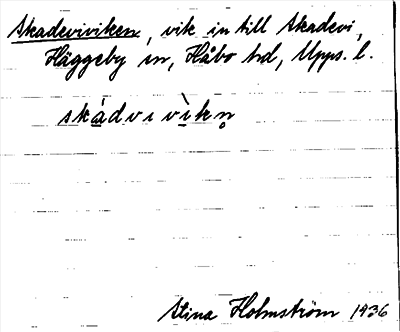 Skadeviviken, vik in till Skadevi,
Häggeby sn, Håbo hd, Upps. l.
skádvivìkn̥
Stina Holmström 1936